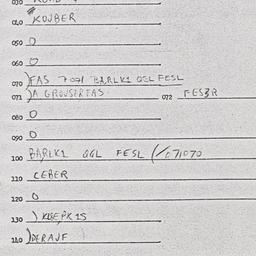 040 KOJBER
050 O
060 O
070 )FAS 7071 BARLK1 OGL FESL
071 )A GROVSERTAS. 072 FES3R
080 O
090 O
100 BARLK1 OGL FESL (/071070
110 CEBER
120 O
130 ) KLGE,PK 15
140 )DERAUF